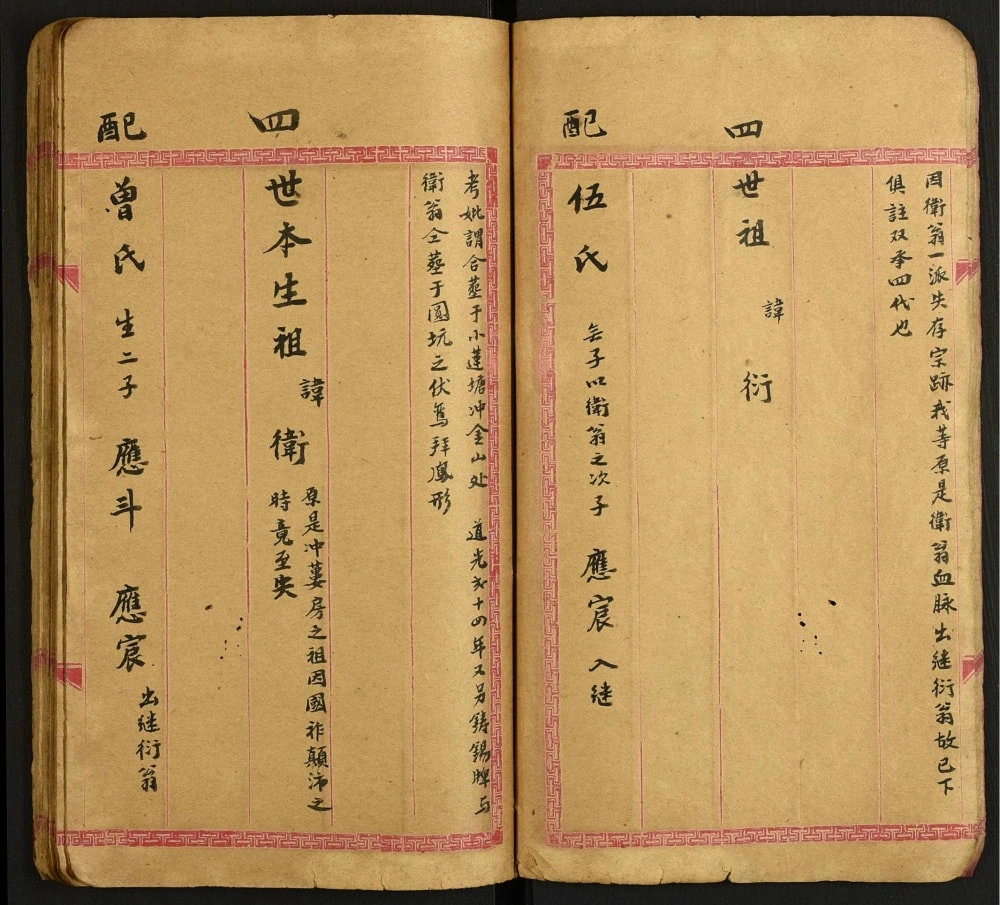 因衛翁一派失存宗跡我等原是衛翁血脉出继衍翁故已下
俱註双承四代也
四世祖 諱 衍
配伍氏 無子以衛翁之次子 應宸 入继
考妣謂合塟于小莲塘冲金山处 道光弍十四年又另鋳錫牌与
衛翁仝塟于圓坑之伏鴛拜鳳形
四世本生祖 諱 衛 原是冲蒌房之祖因國祚顛沛之
時竟至失
配曾氏 生二子 應斗 應宸 出继衍翁